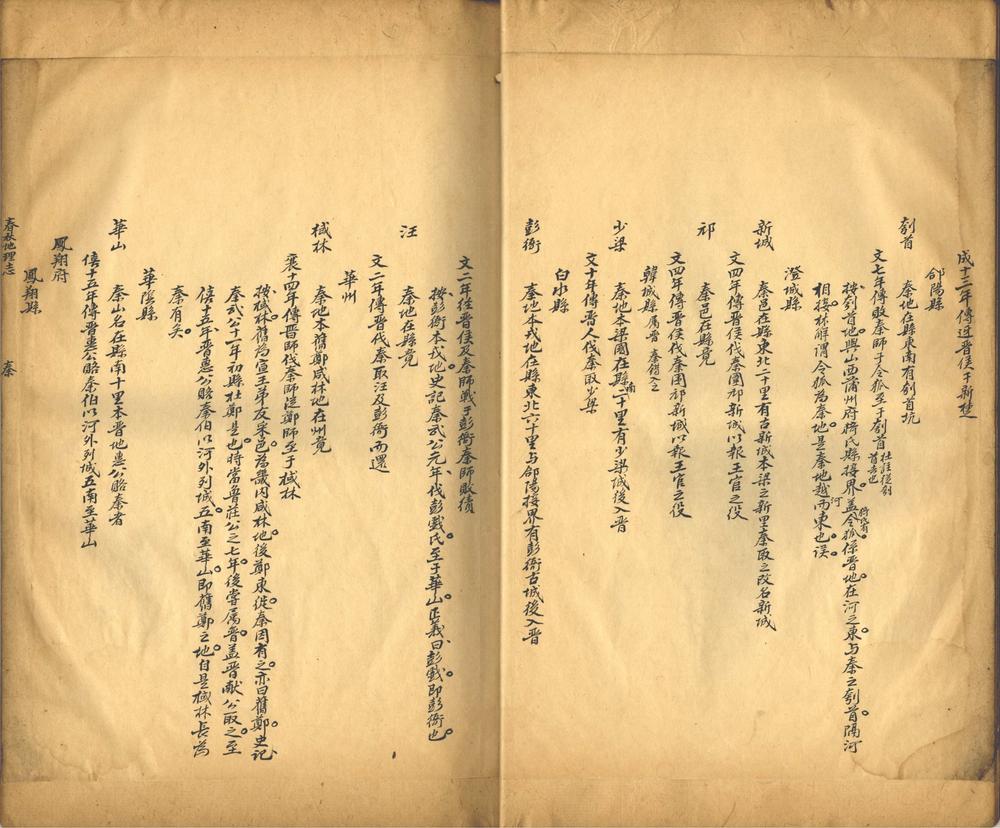 成十三年傳迓晉侯于新楚
郃陽縣
刳首
秦地在縣東南有刳首坑
文七年傳敗秦師于令狐至于刳首杜註從刳首去也
按刳首地與山西蒲州府猗氏縣接界蓋令狐係晉地在河之東与秦之刳首隔河
猗氏有
相接林解謂令狐為秦地是秦地越河而東也誤
澄城縣
新城
秦邑在縣東北二十里有古新城本梁之新里秦取之改名新城
文四年傳晉侯伐秦圍祁新城以報王官之役
祁
秦邑在縣竟
文四年傳晉侯伐秦圍祁新城以報王官之役
韓城縣屬晉秦錯入之
少梁
秦地本梁國在縣南二十里有少梁城後入晉
文十年傳晉人伐秦取少梁
白水縣
彭衙
秦地本戎地在縣東北六十里与郃陽接界有彭衙古城後入晉
文二年經晉侯及秦師戰于彭衙秦師敗績
按彭衙本戎地史記秦武公元年伐彭戲氏至于華山正義曰彭戲即彭衙也
汪
秦地在縣竟
文二年傳晉伐秦取汪及彭衙而還
華州
棫林
秦地本舊鄭咸林地在州竟
襄十四年傳晉師伐秦師從鄭師至于棫林
按棫林舊為宣王弟友采邑為畿內咸林地後鄭東徙秦因有之亦曰舊鄭史記
秦武公十一年初縣杜鄭是也時當魯莊公之七年後嘗屬晉蓋晉獻公取之至
僖十五年晉惠公賂秦伯以河外列城五南至華山即舊鄭之地自是棫林長為
秦有矣
華陰縣
華山
秦山名在縣南十里本晉地惠公賂秦者
僖十五年傳晉惠公賂秦伯以河外列城五南至華山
鳳翔府
鳳翔縣
春秋地理志
秦